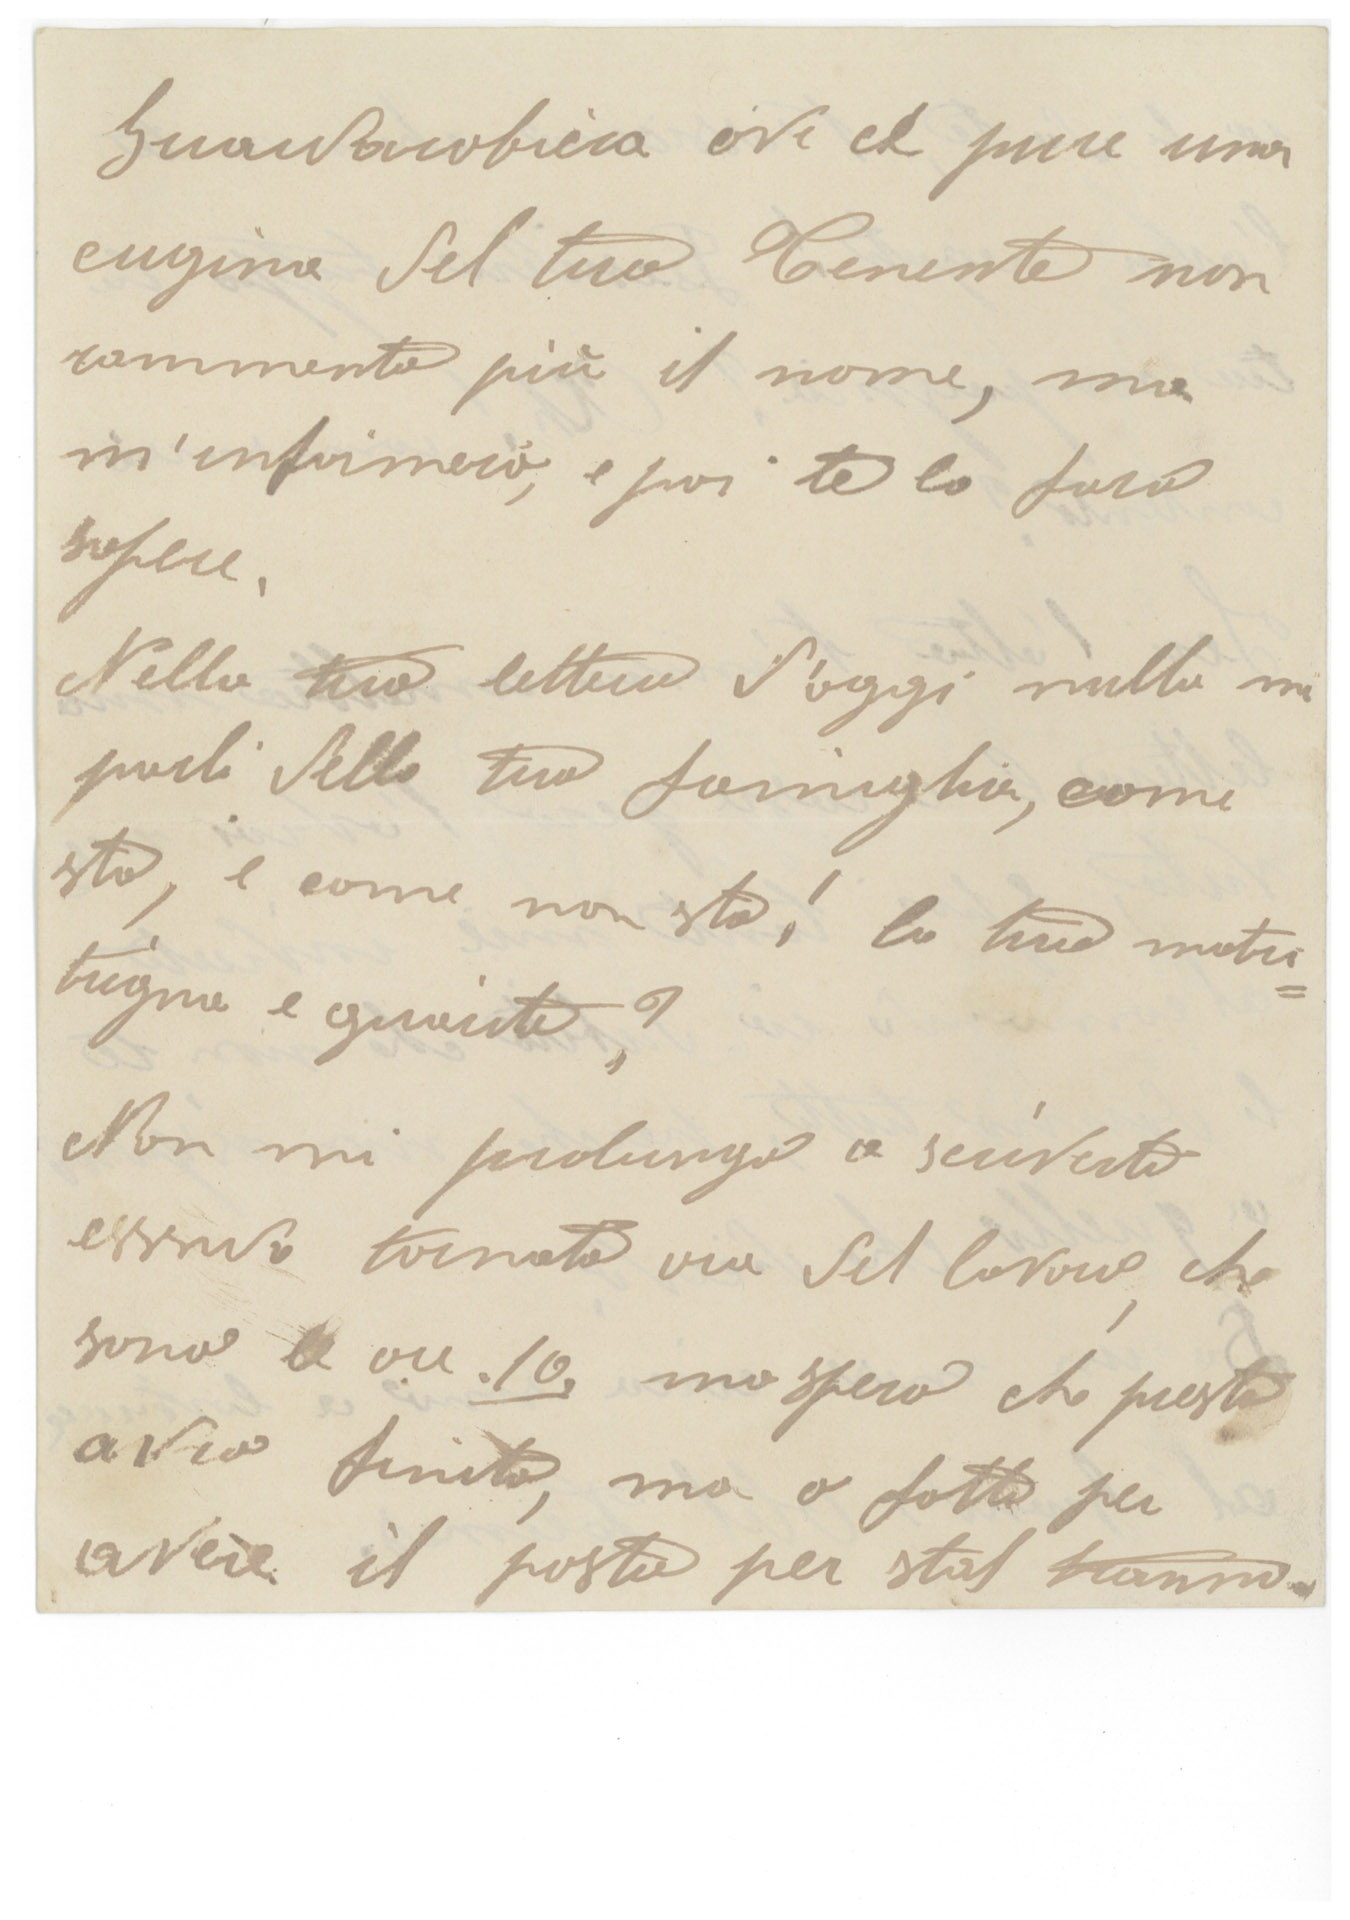 Guardarobiera ove cè pure una
cugina del tuo Tenente non
rammento più il nome, ma
m'informerò, e poi te lo farò
sapere.
Nella tua lettera d'oggi nulla mi
parli della tua famiglia, come
sta, e come non sta! la tua matri=
trigna e guarita?
Non mi prolungo a scriverti
essendo tornata ora del lavoro, che
sono le ore .10, ma spero che presto
avrò finito, ma o fatto per
avere il posto per stal